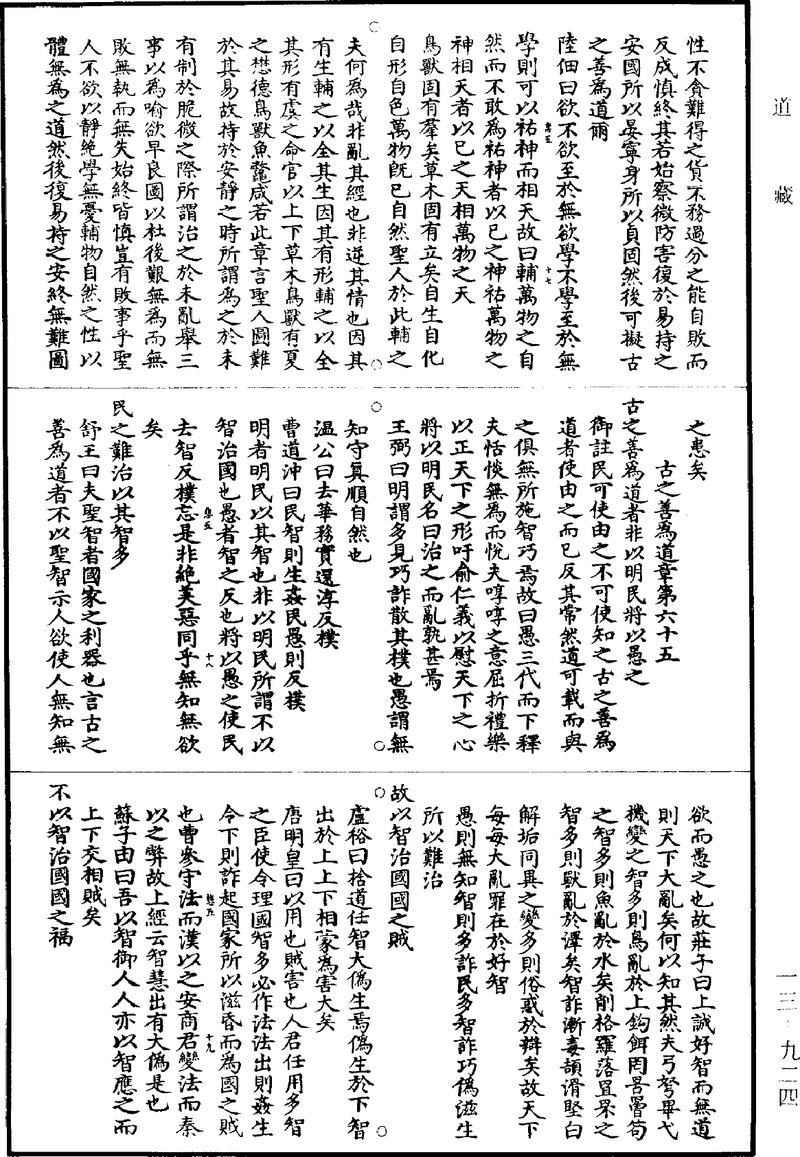 道藏
一三·九二四
性不貪難得之貨不務過分之能自敗而
反成慎終其若始察微防害復於易持之
安國所以晏寧身所以貞固然後可擬古
之善為道爾
陸佃曰欲不欲至於無欲學不學至於無
學則可以祐神而相天故曰輔萬物之自
然而不敢為祐神者以已之神祐萬物之
神相天者以已之天相萬物之天
鳥獸固有羣矣草木固有立矣自生自化
自形自色萬物旣已自然聖人於此輔之
夫何為哉非亂其經也非逆其情也因其
有生輔之以全其生因其有形輔之以全
其形有虞之命官以上下草木鳥獸有夏
之懋德鳥獸魚鼈咸若此章言聖人圖難
於其易故持於安靜之時所謂為之於未
有制於脆微之際所謂治之於未亂舉三
事以為喻欲早良圖以杜後艱無為而無
敗無執而無失始終皆慎豈有敗事乎聖
人不欲以靜絶學無憂輔物自然之性以
體無為之道然後復易持之安終無難圖
之患矣
古之善為道章第六十五
古之善為道者非以明民將以愚之
御註民可使由之不可使知之古之善為
道者使由之而已反其常然道可載而與
之俱無所施智巧焉故曰愚三代而下釋
夫恬惔無為而悅夫啍啍之意屈折禮樂
以正天下之形吁俞仁義以慰天下之心
將以明民名曰治之而亂孰甚焉
王弼曰明謂多見巧詐散其樸也愚謂無
知守真順自然也
温公曰去華務實還淳反樸
曹道沖曰民智則生姦民愚則反樸
明者明民以其智也非以明民所謂不以
智治國也愚者智之反也將以愚之使民
去智反樸忘是非絶美惡同乎無知無欲
矣
民之難治以其智多
舒王曰夫聖智者國家之利器也言古之
善為道者不以聖智示人欲使人無知無
欲而愚之也故莊子曰上誠好智而無道
則天下大亂矣何以知其然夫弓弩畢弋
機變之智多則鳥亂於上鈎餌罔罟罾笱
之智多則魚亂於水矣削格羅落罝罘之
智多則獸亂於澤矣智詐漸毒頡滑堅白
解垢同異之變多則俗惑於辯矣故天下
每每大亂罪在於好智
愚則無知智則多詐民多智詐巧偽滋生
所以難治
故以智治國國之賊
盧裕曰捨道任智大偽生焉偽生於下智
出於上上下相蒙為害大矣
唐明皇曰以用也賊害也人君任用多智
之臣使令理國智多必作法法出則姦生
令下則詐起國家所以滋昏而為國之賊
也曹參守法而漢以之安商君變法而秦
以之弊故上經云智慧出有大偽是也
蘇子由曰吾以智御人人亦以智應之而
上下交相賊矣
不以智治國國之福